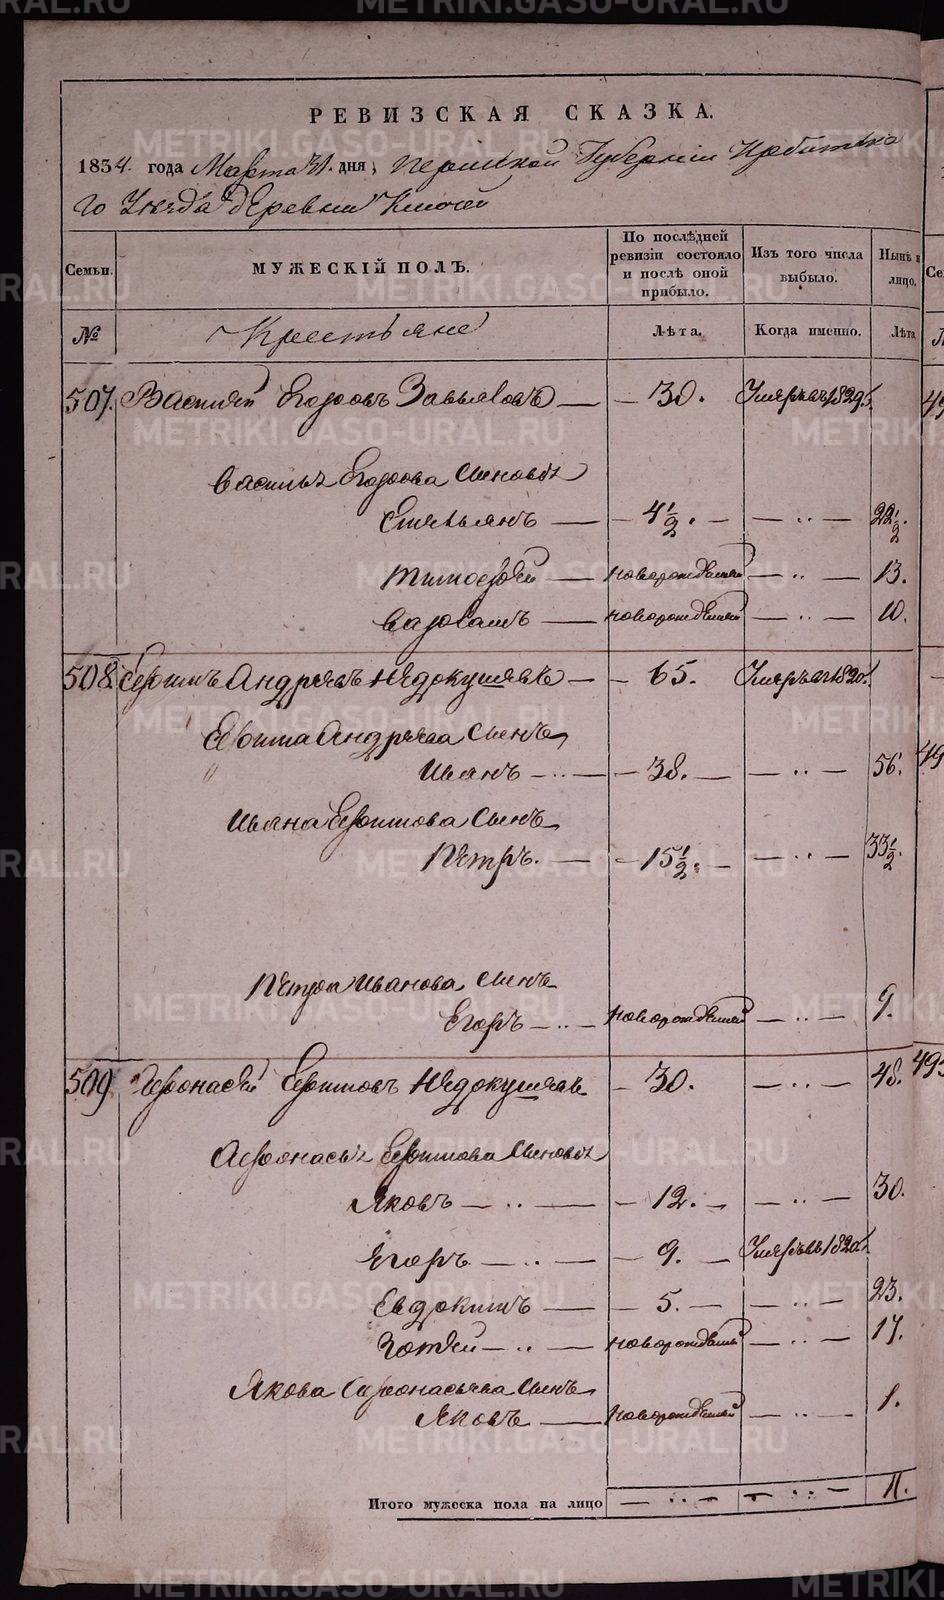 РЕВИЗСКАЯ СКАЗКА.
1834. года Марта 31. дня, Пермской Губернии Ирбитска
го Уезда деревни Ключей
Семьи. МУЖЕСКІЙ ПОЛЪ. По послѣдней ревизіи состояло и послѣ оной прибыло. Изъ того числа выбыло. Нынѣ на лицо.
№ Крестьяне Лѣта. Когда именно. Лѣта
507. Василей Егоровъ Завьяловъ — 30. Умеръ въ 1829.
Василья Егорова сыновья
Емельянъ — 4 1/2. — " — 22 1/2.
Тимофей — новорожденной — " — 13.
Варламъ — новорожденной — " — 10.
508. Ефимъ Андреевъ Недокушевъ — 65. Умеръ въ 1820.
Ефима Андреева сынъ
Иванъ — 38. — " — 56.
Ивана Ефимова сынъ
Петръ. — 15 1/2. — " — 33 1/2.
Петра Иванова сынъ
Егоръ — новорожденной — " — 9.
509. Афонасей Ефимовъ Недокушевъ — 30. — " — 48.
Афонасья Ефимова сыновья
Яковъ — 12. — " — 30.
Егоръ — 9. — Умеръ въ 1820.
Евдокимъ — 5. — " — 23.
Фотей — новорожденной — " — 17.
Якова Афонасьева сынъ
Яковъ — новорожденной — " — 1.
Итого мужеска пола на лицо — " — — " — 11.
METRIKI.GASO-URAL.RU